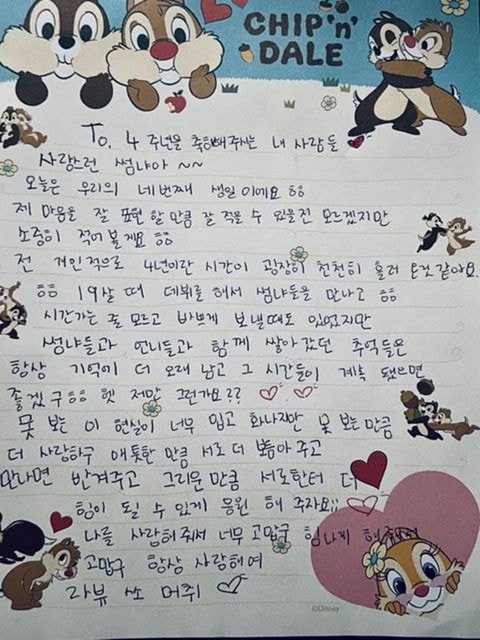 CHIP 'n' DALE
To. 4 주년을 축하해주시는 내 사람들
사랑스런 썸냐아 ~~
오늘은 우리의 네번째 생일이에요 ㅎㅎ
제 마음을 잘 표현 할 만큼 잘 적을 수 있을진 모르겠지만
소중히 적어 볼게요 ㅎㅎ
전 개인적으로 4년이란 시간이 굉장히 천천히 흘러 온것 같아요.
ㅎㅎ 19살 때 데뷔를 해서 썸냐들을 만나고 ㅎㅎ
시간가는 줄 모르고 바쁘게 보낼때도 있었지만
썸냐들과 언니들과 함께 쌓아갔던 추억들은
항상 기억에 더 오래 남고 그 시간들이 계속 됐으면
좋겠구ㅎㅎ 헷 저만 그런가요??
못 보는 이 현실이 너무 밉고 화나지만 못 보는 만큼
더 사랑하구 애틋한 만큼 서로 더 보듬아 주고
만나면 반겨주고 그리운 만큼 서로한테 더
힘이 될 수 있게 응원 해 주자요!!
나를 사랑해줘서 너무 고맙구 힘나게 해줘서
고맙구 항상 사랑해여
라뷰 쏘 머취
©Disney